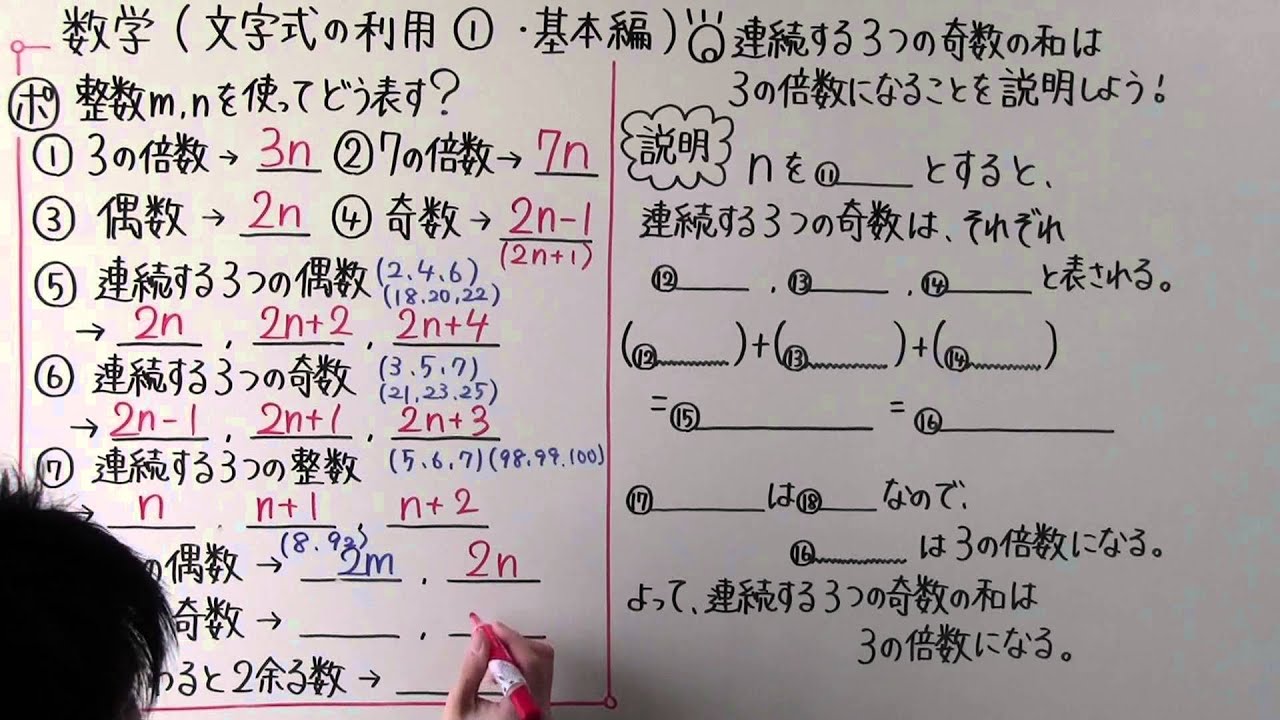 数学(文字式の利用①・基本編)
ポ 整数m,nを使ってどう表す?
①3の倍数→3n ②7の倍数→7n
③偶数→2n ④奇数→2n-1
(2n+1)
⑤連続する3つの偶数(2.4.6)
(18.20.22)
→2n, 2n+2, 2n+4
⑥連続する3つの奇数(3.5.7)
(21.23.25)
→2n-1, 2n+1, 2n+3
⑦連続する3つの整数(5.6.7)(98.99.100)
→n, n+1, n+2
(8.92)
の偶数→2m, 2n
奇数→ ,
わると2余る数→
連続する3つの奇数の和は
3の倍数になることを説明しよう!
説明 nを⑪ とすると、
連続する3つの奇数は、それぞれ
⑫ , ⑬ , ⑭ と表される。
(⑫ )+(⑬ )+(⑭ )
=⑮ =⑯
⑰ は⑱ なので、
⑯ は3の倍数になる。
よって、連続する3つの奇数の和は
3の倍数になる。